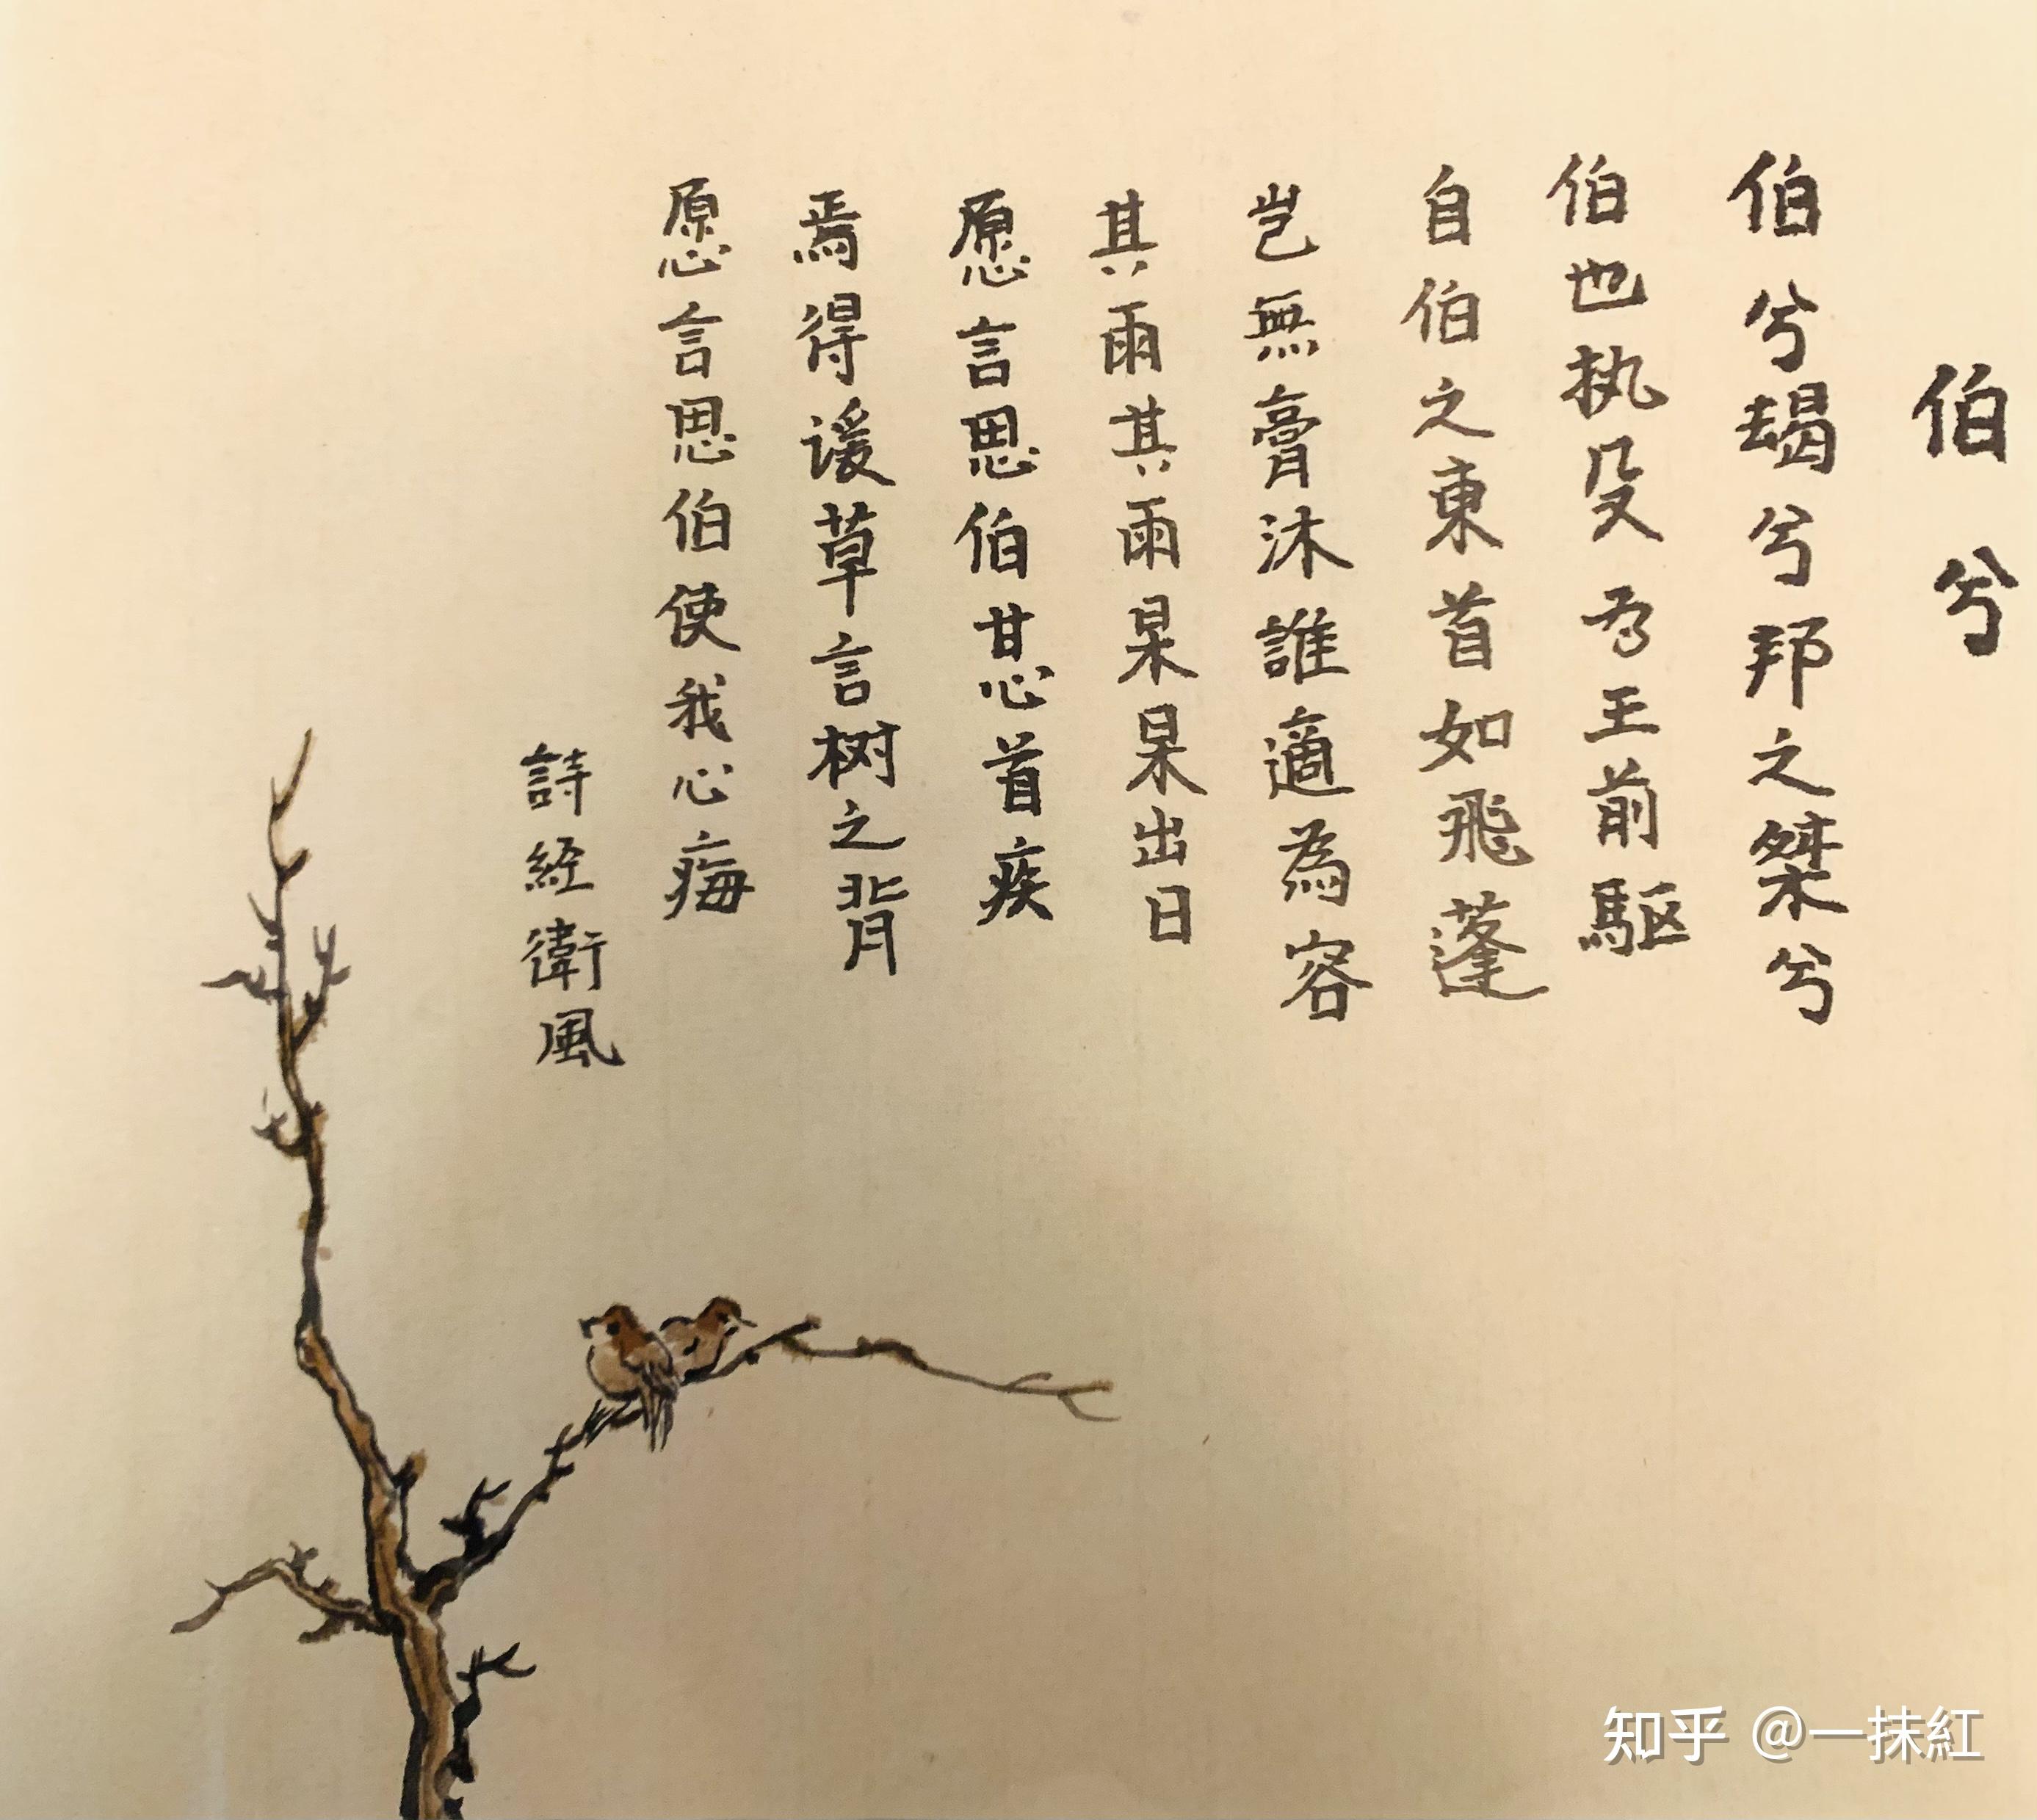 伯兮
伯兮朅兮邦之桀兮
伯也执殳为王前駆
自伯之東首如飛蓬
岂無膏沐誰適為容
其雨其雨杲杲出日
愿言思伯甘心首疾
焉得谖草言树之背
愿言思伯使我心痗
詩経衛風
知乎 @一抹紅